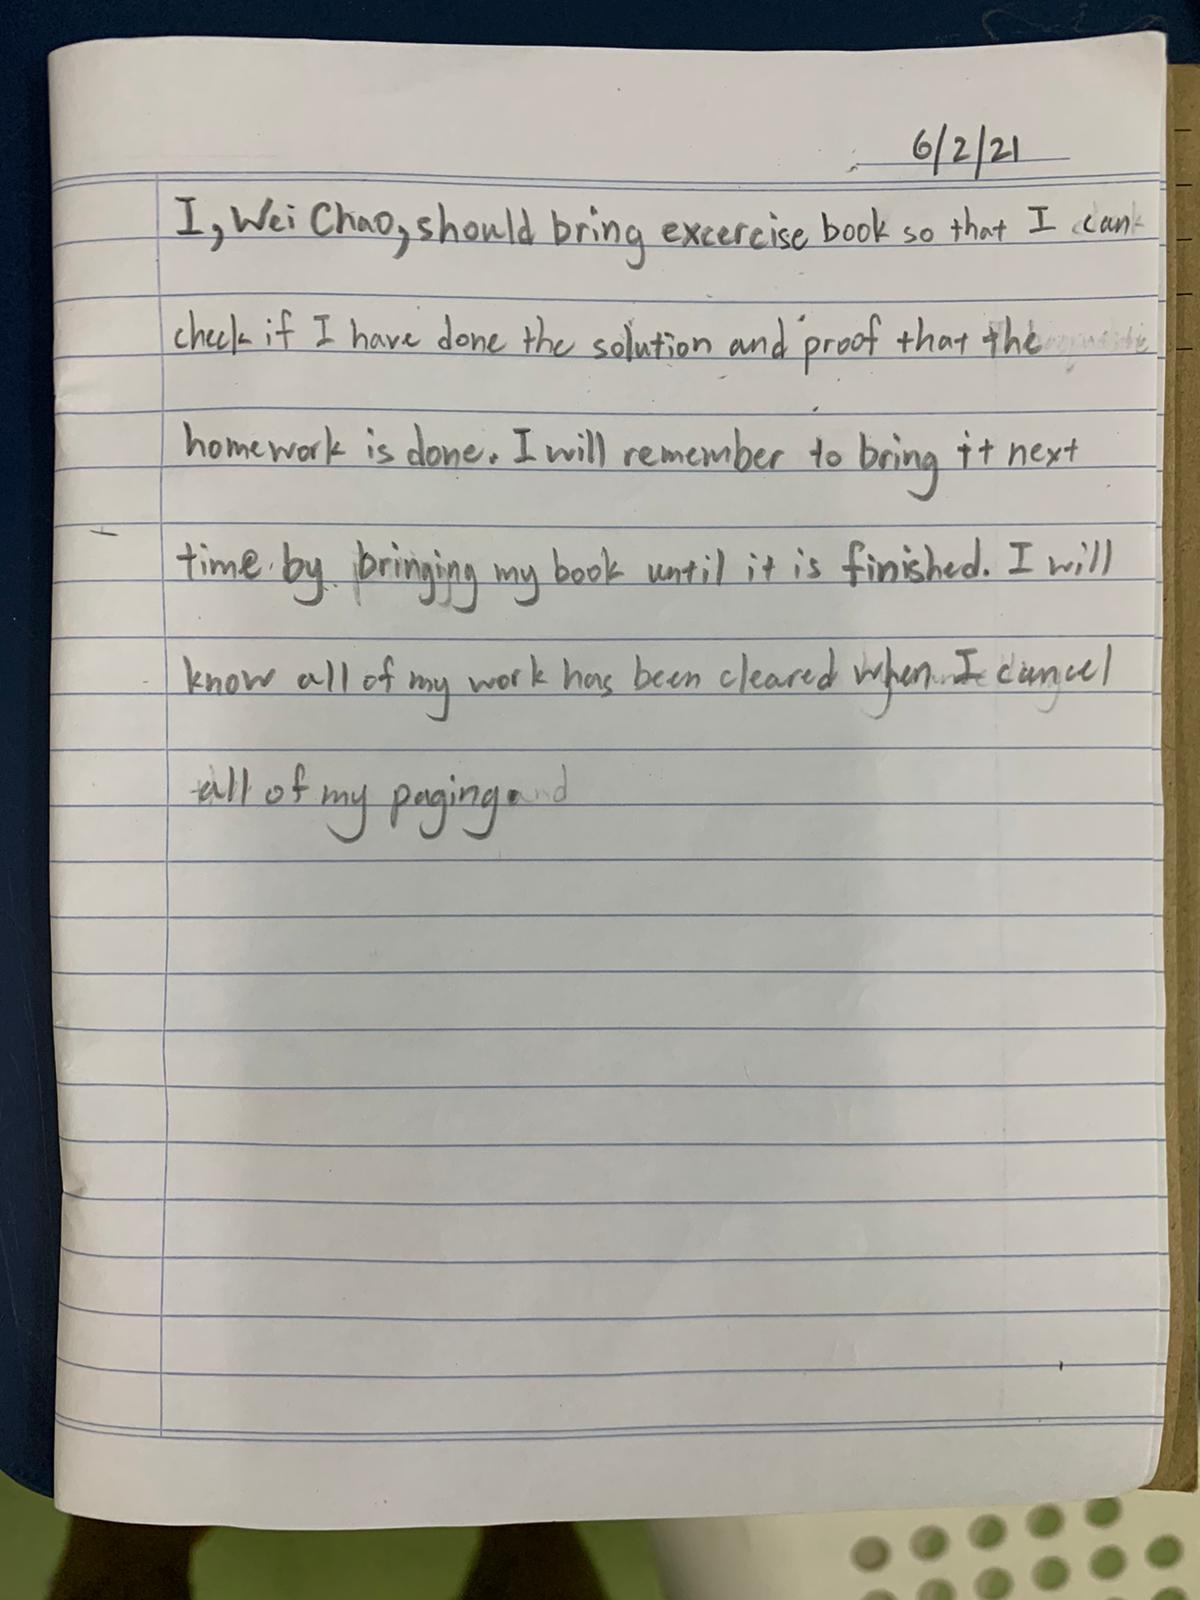 6/2/21
I, Wei Chao, should bring excercise book so that I can
check if I have done the solution and proof that the
homework is done. I will remember to bring it next
time by bringing my book until it is finished. I will
know all of my work has been cleared when I cancel
all of my paging.